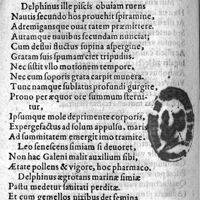 Delphinus ille piscis obuiam ruens
Nautis secundo hos prouehit spiramine,
Adremigamque quas ratem præmittere.
Autumque nauibus secundam nunciat;
Cum desui fluctus supina aspergine,
Gratam suis spumam ciet tripudiis.
Nec sistit vllo motionem tempore,
Nec cum soporis grata carpit munera.
Tunc namque sublatus profundi gurgite,
Prono per æquor ore summum sternitur,
Ipsumque mole deprimente corporis,
Expergefactus ad solum appulsu, maris
Ad summitatem emergit imo tramite.
Leo senescens simiam si deuoret,
Non hac Galeni malit auxilium sibi,
Ætate pollens & vigore, hoc pharmaco.
Delphinus ægrotans marinæ simiæ
Pastu medetur sanitati perditæ.
Et cum gemellos nixibus det femina